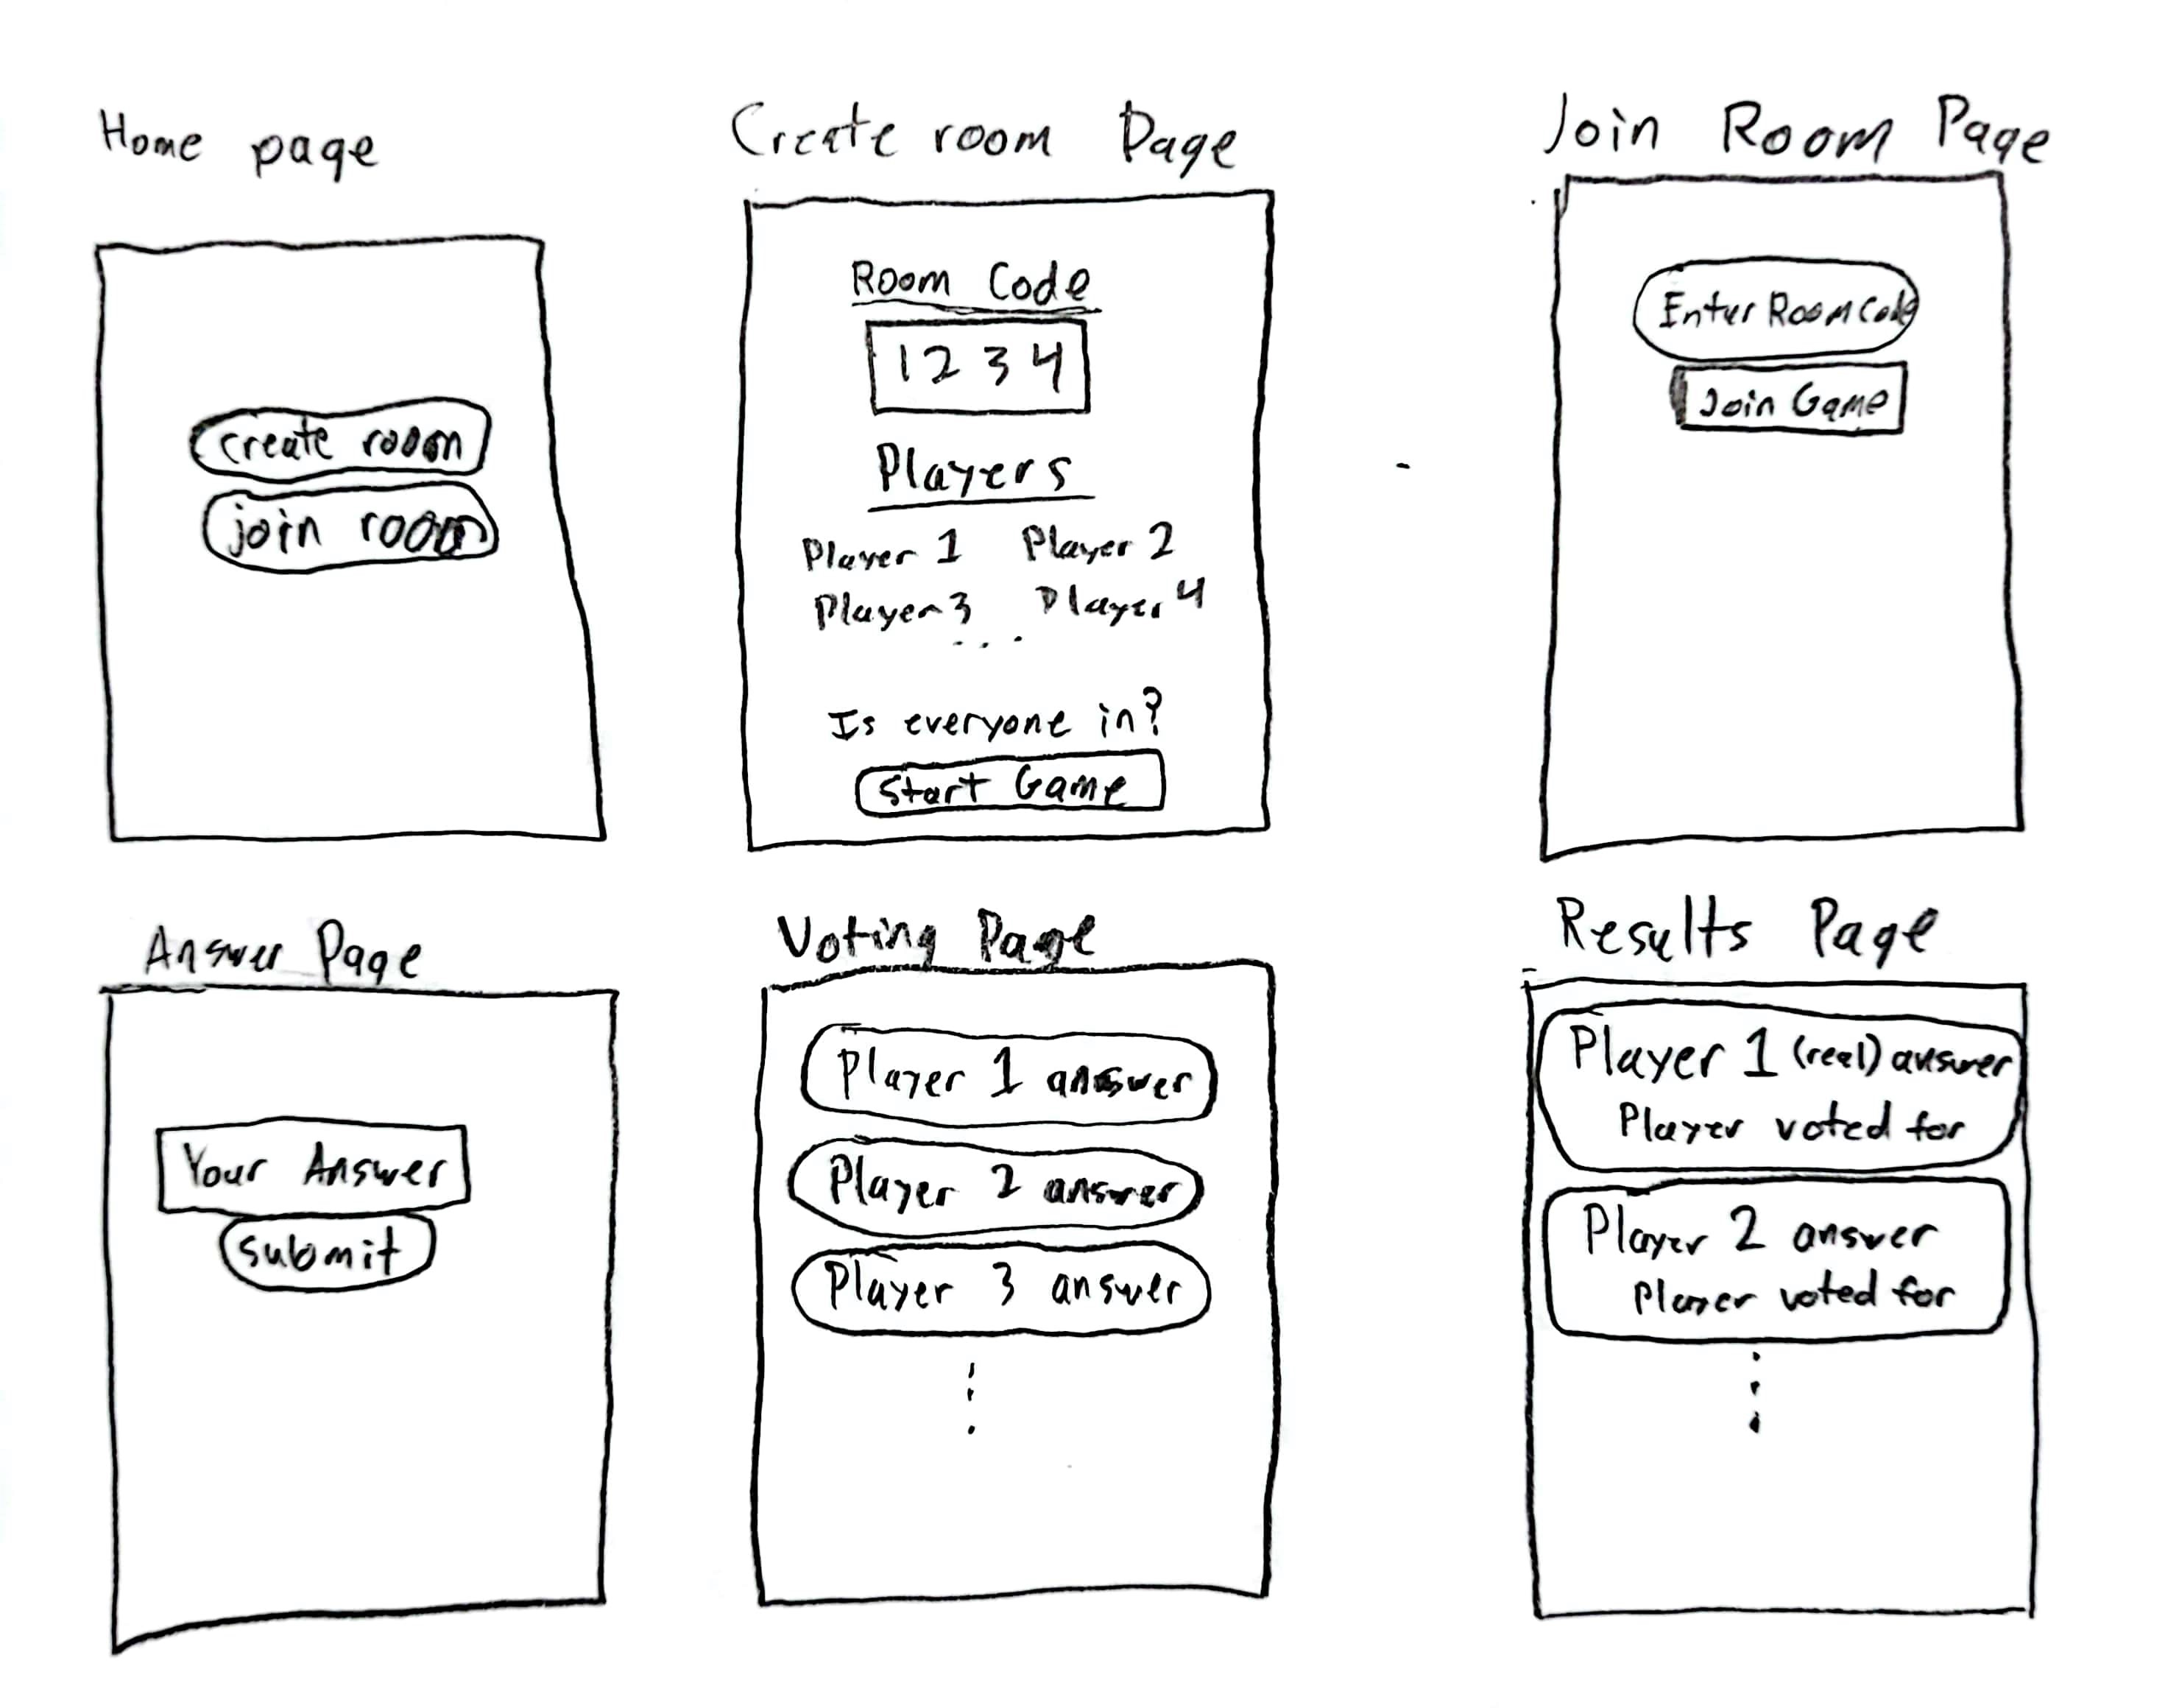 Home page
create room
join room
Create room Page
Room Code
1234
Players
Player 1 Player 2
Player 3 Player 4
...
Is everyone in?
Start Game
Join Room Page
Enter Room Code
Join Game
Answer Page
Your Answer
submit
Voting Page
Player 1 answer
Player 2 answer
Player 3 answer
Results Page
Player 1 (real) answer
Player voted for
Player 2 answer
Player voted for